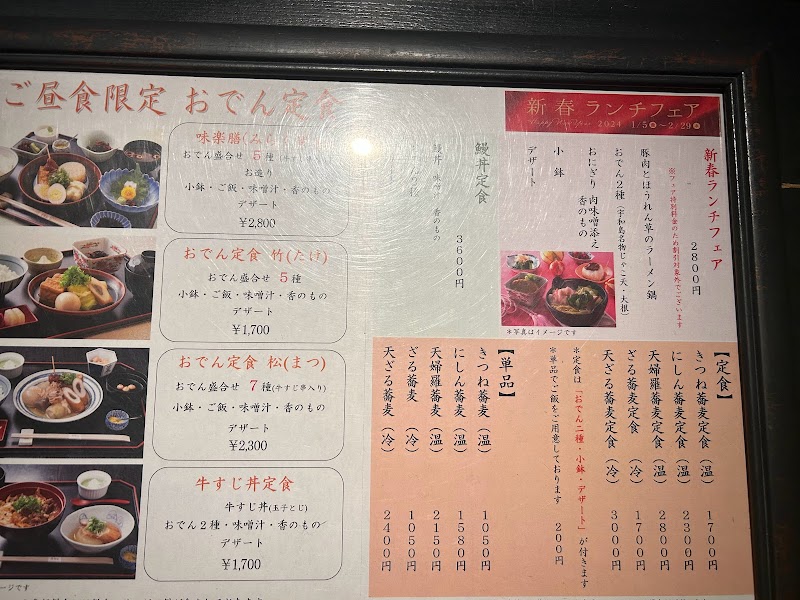 ご昼食限定 おでん定食
味楽膳(み
おでん盛合せ 5種
お造り
小鉢・ご飯・味噌汁・香のもの
デザート
¥2,800
おでん定食 竹(たけ)
おでん盛合せ 5種
小鉢・ご飯・味噌汁・香のもの
デザート
¥1,700
おでん定食 松(まつ)
おでん盛合せ 7種(牛すじ串入り)
小鉢・ご飯・味噌汁・香のもの
デザート
¥2,300
牛すじ丼定食
牛すじ丼(玉子とじ)
おでん2種・味噌汁・香のもの
デザート
¥1,700
ージです
新春 ランチフェア
Happy New Year 2024 1/5㊎～2/29㊍
新春ランチフェア
※フェア特別料金のため割引対象外でございます
2800円
豚肉とほうれん草のラーメン鍋
おでん2種(宇和島名物じゃこ天・大根)
おにぎり 肉味噌添え
香のもの
小鉢
デザート
＊写真はイメージです
鰻丼定食
3600円
鰻丼 味噌汁 香のもの
【定食】
きつね蕎麦定食(温) 1700円
にしん蕎麦定食(温) 2300円
天婦羅蕎麦定食(温) 2800円
ざる蕎麦定食(冷) 1700円
天ざる蕎麦定食(冷) 3000円
＊定食は「おでん二種・小鉢・デザート」が付きます
＊単品でご飯をご用意しております 200円
【単品】
きつね蕎麦(温) 1050円
にしん蕎麦(温) 1580円
天婦羅蕎麦(温) 2150円
ざる蕎麦(冷) 1050円
天ざる蕎麦(冷) 2400円